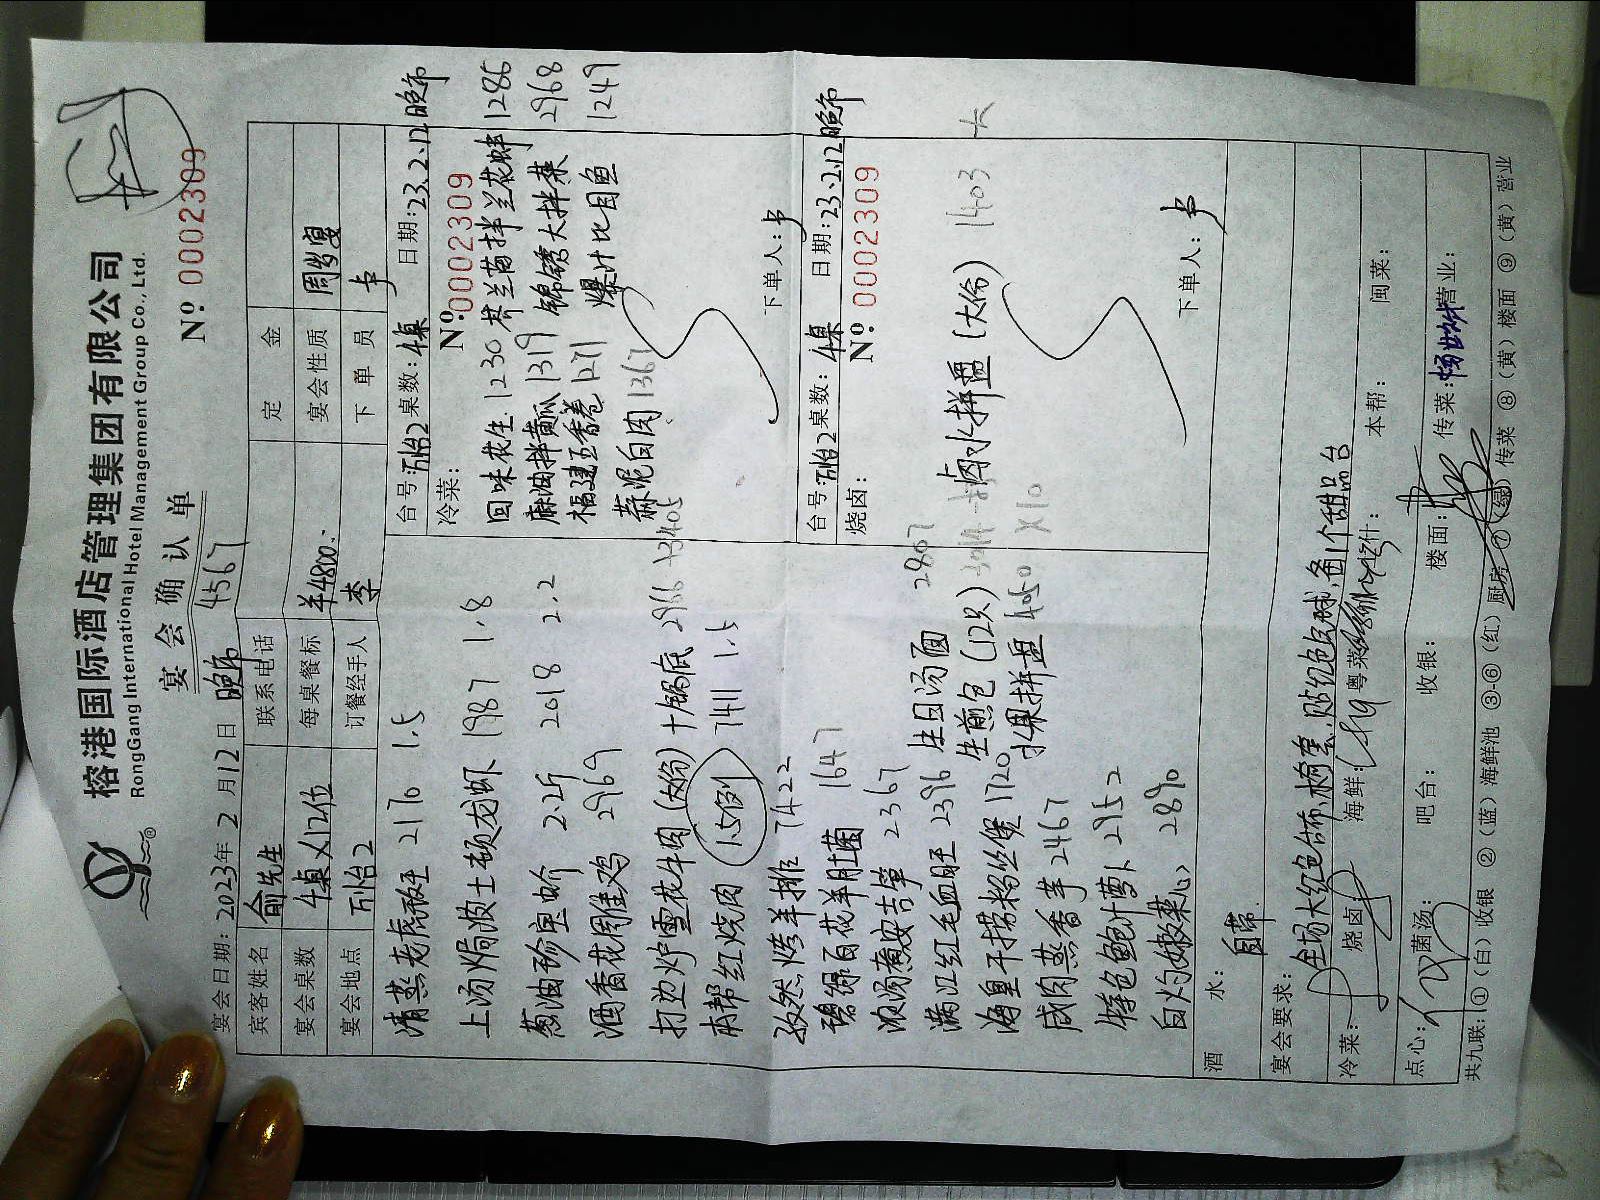 榕港国际酒店管理集团有限公司
RongGang International Hotel Management Group Co., Ltd.
宴会确认单
№ 0002309
宴会日期: 2023年 2 月 12 日 晚市 4567
宾客姓名 俞先生 联系电话 定金
宴会桌数 4桌×12位 每桌餐标 ¥4800.- 宴会性质 周岁宴
宴会地点 万怡2 订餐经手人 李 下单员 卡
清蒸老虎斑 2176 1.5
上汤焗波士顿龙虾 1987 1.8
葱油珍宝蚧 2.2斤 2018 2.2
酒香花雕鸡 2969
打边炉雪花牛肉(大份)+锅底 2966 +3405
本帮红烧肉 1.5例 7411 1.5
孜然烤羊排 7422
碧绿百花羊肚菌 1647
浓汤煮安吉笋 2367
满江红毛血旺 2396
海皇干捞粉丝煲 1720
咸肉蒸香芋 2467
特色鲍汁萝卜 2952
白灼嫩菜心 2890
生日汤面 2807
生煎包(12只) 3014
水果拼盘 4050 ×10
台号: 万怡2 桌数: 4桌 日期: 23.2.12 晚市
冷菜: №:0002309
回味花生 1230 芥兰苗拌兰花蚌 1286
麻油拌黄瓜 1319 锦绣大拌菜 2968
福建五香卷 1271 爆汁比目鱼 1249
蒜泥白肉 1367
下单人: 卡
台号: 万怡2 桌数: 4桌 日期: 23.2.12 晚市
烧卤: №: 0002309
卤水拼盘(大份) 1403 大
下单人: 卡
酒水: 自带
宴会要求: 全场大红色台布,椅套,贴红色气球,备1个甜品台
冷菜: 烧卤: 海鲜: 粤菜: 烧什: 本帮: 闽菜:
点心: 菌汤: 吧台: 收银: 楼面: 传菜: 营业:
共九联: ①(白)收银 ②(蓝)海鲜池 ③-⑥(红)厨房 ⑦(绿)传菜 ⑧(黄)楼面 ⑨(黄)营业